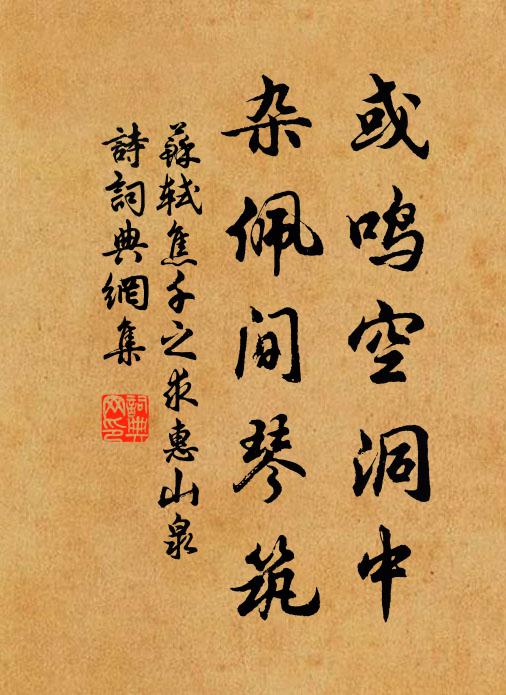 或鸣空洞中
杂佩间琴筑
蘇轼焦千之求惠山泉
詩詞典網集
詞典
网印